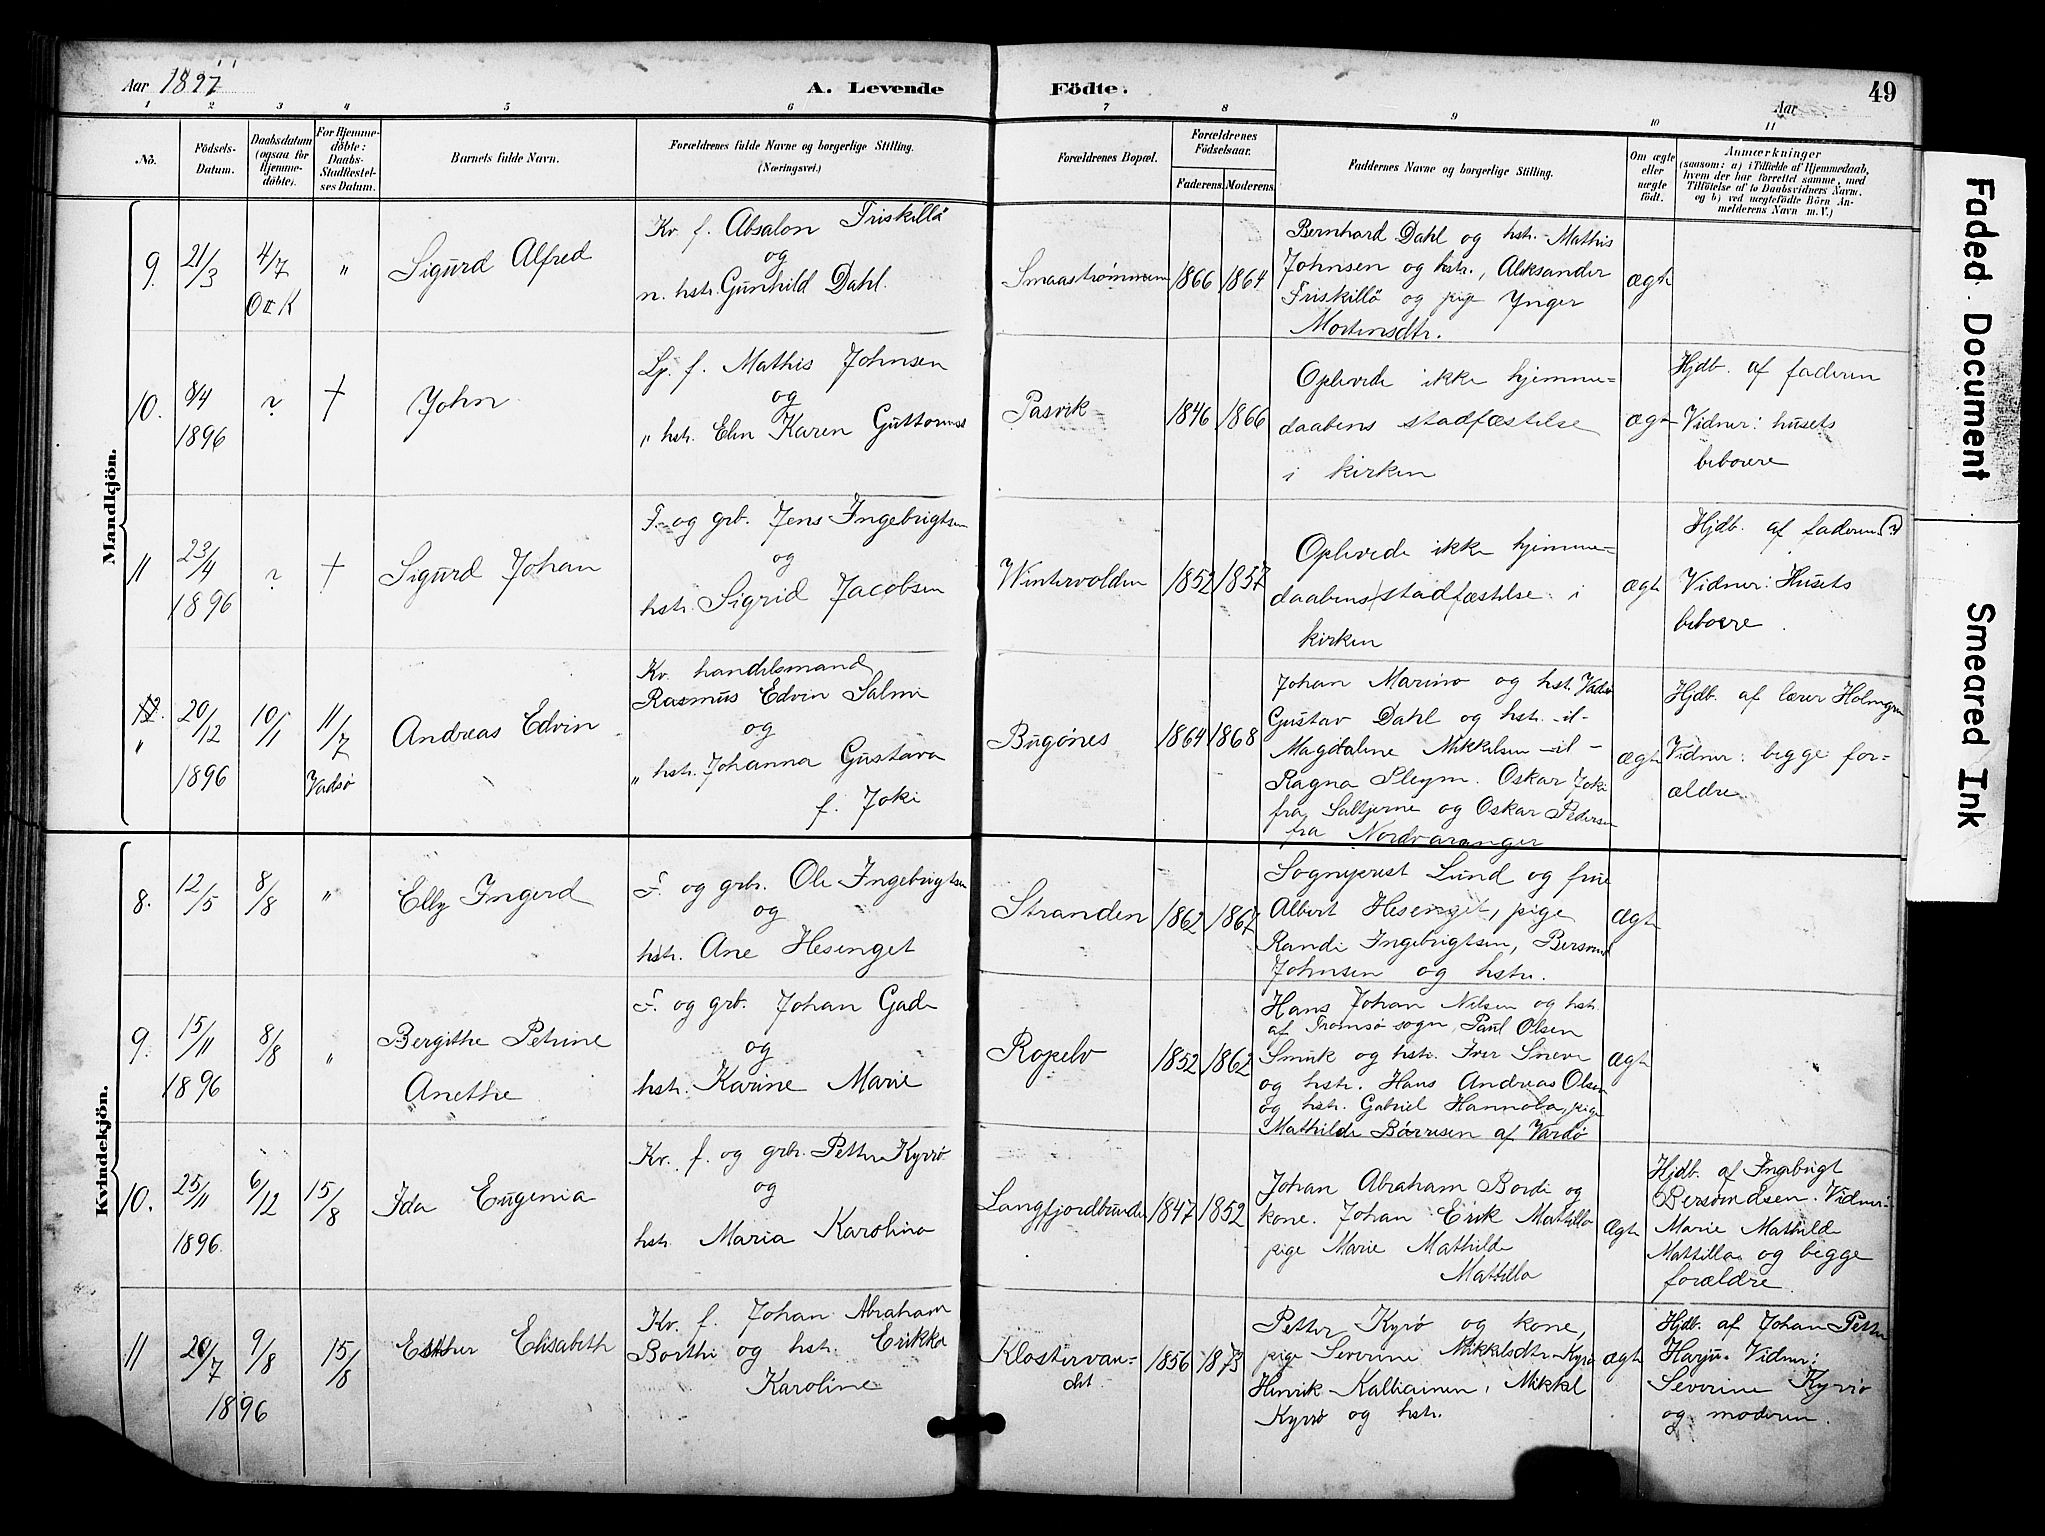 Aar 1897
A. Levende Födte.
Aar
49
1 2 3 4 5 6 7 8 9 10 11
No.
Födsels-
Datum.
Daabsdatum
(ogsaa for
Hjemme-
döbte).
For Hjemme-
döbte:
Daabs-
Stadfæstel-
ses Datum.
Barnets fulde Navn.
Forældrenes fulde Navne og borgerlige Stilling.
(Næringsvei.)
Forældrenes Bopæl.
Forældrenes
Födselsaar.
Faderens.
Moderens.
Faddernes Navne og borgerlige Stilling.
Om ægte
eller
uægte
født.
Anmærkninger
(saasom: a) i Tilfælde af Hjemmedaab,
hvem der har forrettet samme, med
Tilföielse af to Daabsvidners Navn.
og b) ved uægtefödte Börn An-
melderens Navn m.V.)
Mandkjön.
9.
21/3
4/7
O. K
"
Sigurd Alfred
Kv. f. Absalon Friskillö
og
n. hstr. Gunhild Dahl.
Smaastrømmen
1866
1864
Bernhard Dahl og hstr. Mathis
Johnsen og hstr., Aleksander
Friskillö og pige Ynger
Mortensdtr.
ægte
10.
8/4
1896
?
†
John
Lp. f. Mathis Johnsen
og
" hstr. Elen Karen Guttorms
Pasvik
1846
1866
Oplevede ikke hjemme=
daabens stadfæstelse
i kirken
ægte
Hjdb. af faderen
Vidner: husets
beboere
11
23/4
1896
?
†
Sigurd Johan
F. og grb. Jens Ingebrigtsen
og
hstr. Sigrid Jacobsen
Wintervolden
1852
1857
Oplevede ikke hjemme=
daabens stadfæstelse i
kirken
ægte
Hjdb. af faderen (?)
Vidner: Husets
beboere.
12.
"
20/12
1896
10/1
11/7
Vadsø
Andreas Edvin
Kv. handelsmand
Rasmus Edvin Salmi
og
" hstr. Johanna Gustava
f. Joki
Bugönes
1864
1868
Johan Marino og hst. Vadsø
Gustav Dahl og hstr. -il-
Magdaline Mikkelsen -il-
Ragna Sleym. Oskar Joki
fra Saltjerne og Oskar Pedersen
fra Nordvaranger
ægte
Hjdb. af lærer Holmgren
Vidner: begge for=
ældre
Kvindekjön.
8.
12/5
8/8
"
Elly Ingerd
F. og grb. Ole Ingebrigtsen
og
hstr. Ane Hesenget
Stranden
1862
1867
Sogneprest Lund og frue
Albert Hesenget, pige
Randi Ingebrigtsen, Bersvend
Johnsen og hstr.
ægte
9.
15/11
1896
8/8
"
Bergithe Petrine
Anethe
F. og grb. Johan Gade
og
hstr. Karine Marie
Ropelv
1852
1862
Hans Johan Nilsen og hstr.
af Tromsø sogn, Paul Olsen
Smuk og hstr. Iver Sneve
og hstr. Hans Andreas Olsen
og hstr. Gabriel Hannola, pige
Mathilde Børresen af Vardø
ægte
10.
25/11
1896.
6/12
15/8
Ida Eugenia
Kv. f. og grb. Petter Kyrö
og
hstr. Maria Karolina
Langfjordbunden
1847
1852
Johan Abraham Bordi og
kone. Johan Erik Mattilla
pige Marie Mathilde
Mattilla
ægte
Hjdb. af Ingebrigt
Bersvendsen. Vidner:
Marie Mathilde
Mattilla og begge
forældre.
11
20/7
1896
9/8
15/8
Esther Elisabeth
Kv. f. Johan Abraham
Borthi og hstr. Erikka
Karoline
Klostervan=
det.
1856
1873
Petter Kyrö og kone,
pige Severine Mikkelsdtr. Kyrö
Henrik Kalliainen, Mikkel
Kyrrö og hstr.
ægte
Hjdb. af Johan Petter
Harju. Vidner:
Severine Kyrrö
og moderen.
Faded Document
Smeared Ink